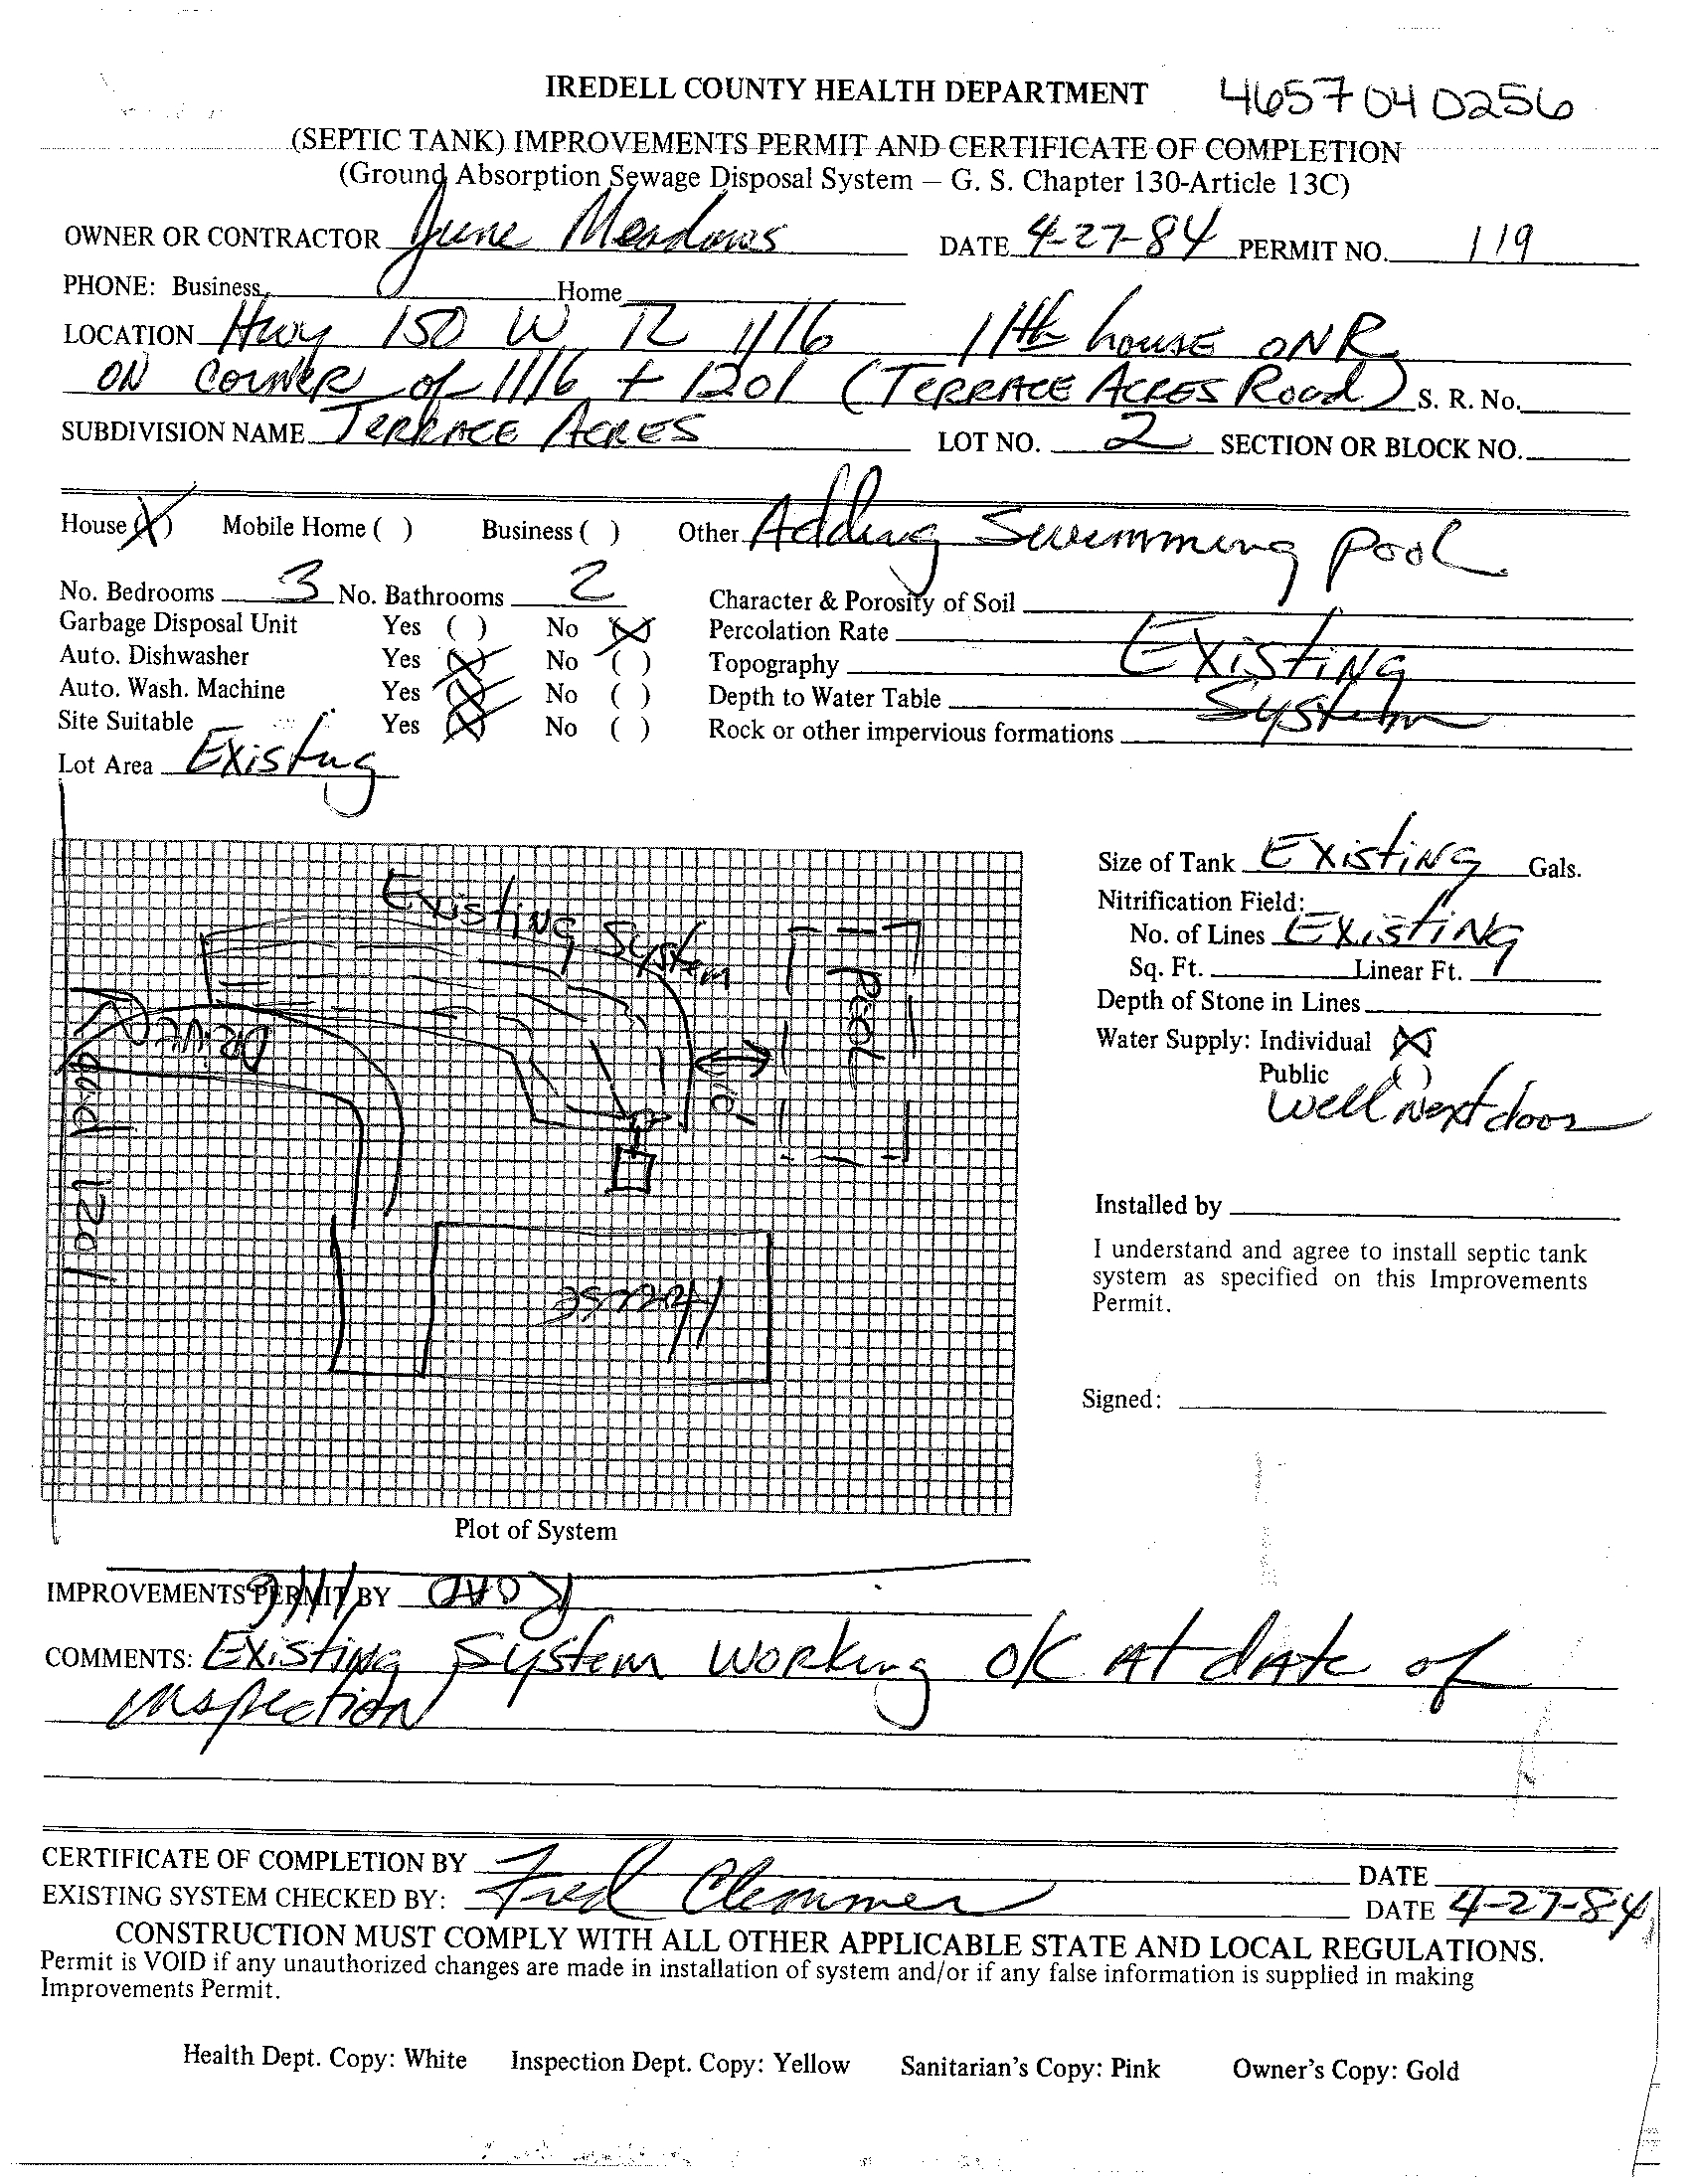 IREDELL COUNTY HEALTH DEPARTMENT 4657040256
(SEPTIC TANK) IMPROVEMENTS PERMIT AND CERTIFICATE OF COMPLETION
(Ground Absorption Sewage Disposal System – G. S. Chapter 130-Article 13C)
OWNER OR CONTRACTOR June Meadows DATE 4-27-84 PERMIT NO. 119
PHONE: Business Home
LOCATION Hwy 150 W TL 1116 11th house ON R
ON CORNER of 1116 + 1201 (TERRACE ACRES Road) S. R. No.
SUBDIVISION NAME TERRACE ACRES LOT NO. 2 SECTION OR BLOCK NO.
House (X) Mobile Home ( ) Business ( ) Other Adding Swimming pool
No. Bedrooms 3 No. Bathrooms 2 Character & Porosity of Soil
Garbage Disposal Unit Yes ( ) No (X) Percolation Rate
Auto. Dishwasher Yes (X) No ( ) Topography Existing
Auto. Wash. Machine Yes (X) No ( ) Depth to Water Table System
Site Suitable Yes (X) No ( ) Rock or other impervious formations
Lot Area Existing
Existing System
Pool
DRIVE
10'
Road 1201
House
Size of Tank Existing Gals.
Nitrification Field:
No. of Lines Existing
Sq. Ft. Linear Ft.
Depth of Stone in Lines
Water Supply: Individual (X)
Public ( )
Well Next door
Installed by
I understand and agree to install septic tank
system as specified on this Improvements
Permit.
Signed:
Plot of System
IMPROVEMENTS PERMIT BY
ROAD 1116
COMMENTS: Existing System working OK At date of
inspection
CERTIFICATE OF COMPLETION BY DATE
EXISTING SYSTEM CHECKED BY: Fred Clemmer DATE 4-27-84
CONSTRUCTION MUST COMPLY WITH ALL OTHER APPLICABLE STATE AND LOCAL REGULATIONS.
Permit is VOID if any unauthorized changes are made in installation of system and/or if any false information is supplied in making
Improvements Permit.
Health Dept. Copy: White Inspection Dept. Copy: Yellow Sanitarian's Copy: Pink Owner's Copy: Gold